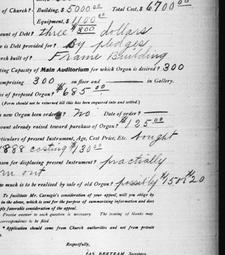 of Church? Building, $5000.00 Total Cost, $6700.00
Equipment, $1100.00
amount of Debt? three $300 dollars
is Debt provided for? By pledges
Church built of? Frame Building
Seating Capacity of Main Auditorium for which Organ is desired? 300
comprising 300 on floor and in Gallery.
of proposed Organ? $685.00
(Form should not be returned till this has been enquired into and settled.)
new Organ been ordered? No Date of order?
amount already raised toward purchase of Organ? $125.00
Particulars of present Instrument, Age, Cost Price, Etc. bought
1888 costing $130.00
Reason for displacing present Instrument? practically
worn out
much is to be realized by sale of old Organ? possibly $15 or $20
To facilitate Mr. Carnegie's consideration of your appeal, will you oblige by
in the above, which is used for the purpose of summarizing information and does
Precise answer to each question is necessary.
Application should come from Church authorities and not from private
Respectfully,
JAS. BERTRAM, Secretary